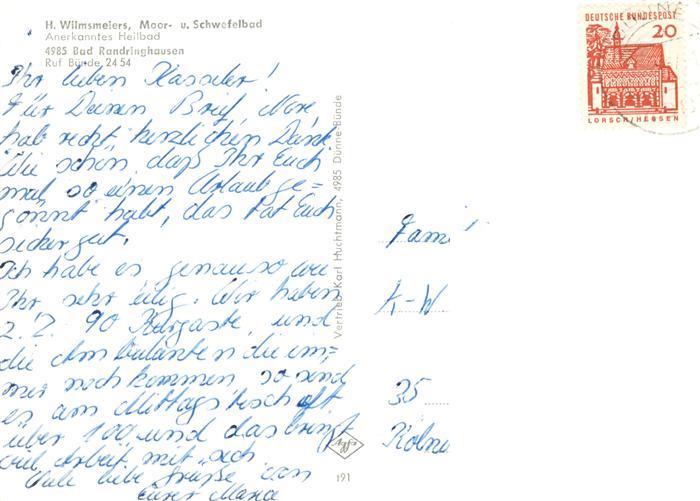 H. Wilmsmeiers, Moor- u. Schwefelbad
Anerkanntes Heilbad
4985 Bad Randringhausen
Ruf Bünde 24 54
Ihr lieben Kasseler!
Für Deinen Brief
hab recht herzlichen Dank.
Wie schön, daß Ihr Euch
mal so einen Urlaub ge=
gönnt habt, das tat Euch
sicher gut.
Ich habe es genauso wie
Ihr sehr eilig. Wir haben
z. Z. 90 Kurgäste, und
die Ambulanten die im=
mer noch kommen so sind
es am Mittagstisch oft
über 100 und das bringt
viel Arbeit mit sich
Viele liebe Grüße von
Eurer
Vertrieb Karl Huchtmann, 4985 Dünne-Bünde
Agfa
191
DEUTSCHE BUNDESPOST
20
LORSCH/HESSEN
Fami
K-W
35